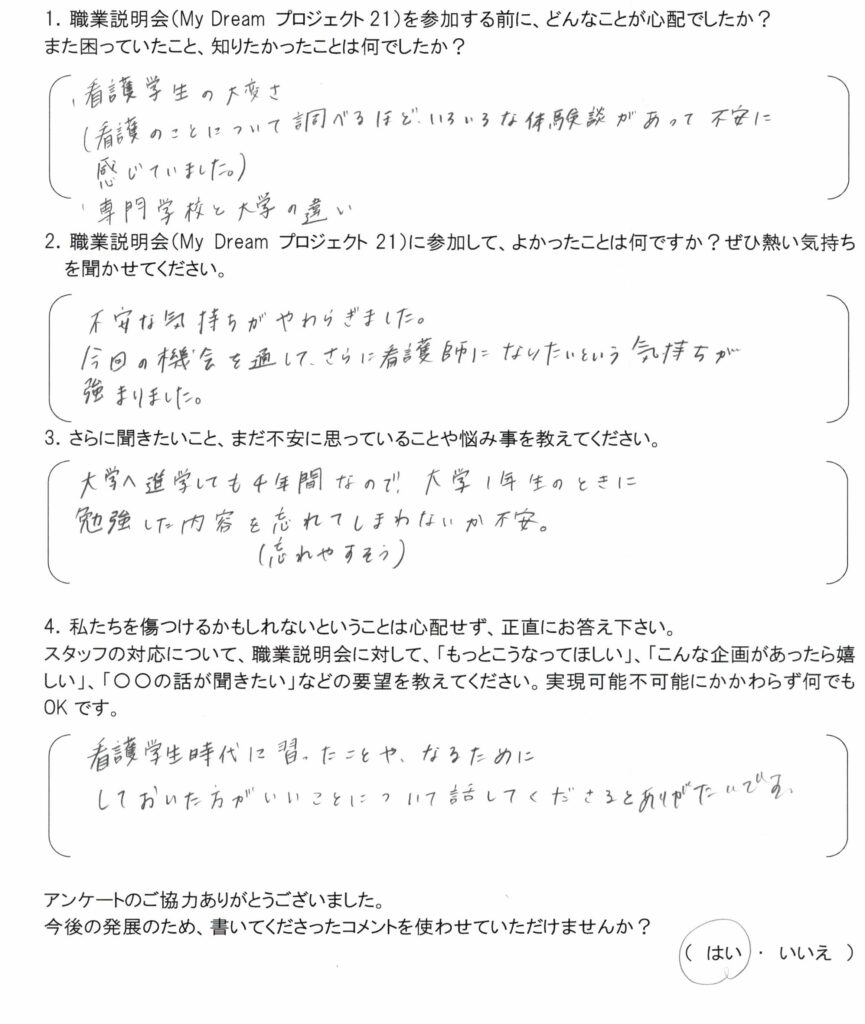 1. 職業説明会(My Dream プロジェクト21)を参加する前に、どんなことが心配でしたか?
また困っていたこと、知りたかったことは何でしたか?
・看護学生の大変さ
(看護のことについて調べるほど、いろいろな体験談があって不安に
感じていました。)
・専門学校と大学の違い
2. 職業説明会(My Dream プロジェクト21)に参加して、よかったことは何ですか?ぜひ熱い気持ち
を聞かせてください。
不安な気持ちがやわらぎました。
今回の機会を通して、さらに看護師になりたいという気持ちが
強まりました。
3. さらに聞きたいこと、まだ不安に思っていることや悩み事を教えてください。
大学へ進学しても4年間なので、大学1年生のときに
勉強した内容を忘れてしまわないか不安。
(忘れやすそう)
4. 私たちを傷つけるかもしれないということは心配せず、正直にお答え下さい。
スタッフの対応について、職業説明会に対して、「もっとこうなってほしい」、「こんな企画があったら嬉
しい」、「〇〇の話が聞きたい」などの要望を教えてください。実現可能不可能にかかわらず何でも
OKです。
看護学生時代に習ったことや、なるために
しておいた方がいいことについて話してくださるとありがたいです。
アンケートのご協力ありがとうございました。
今後の発展のため、書いてくださったコメントを使わせていただけませんか?
( はい ・ いいえ )